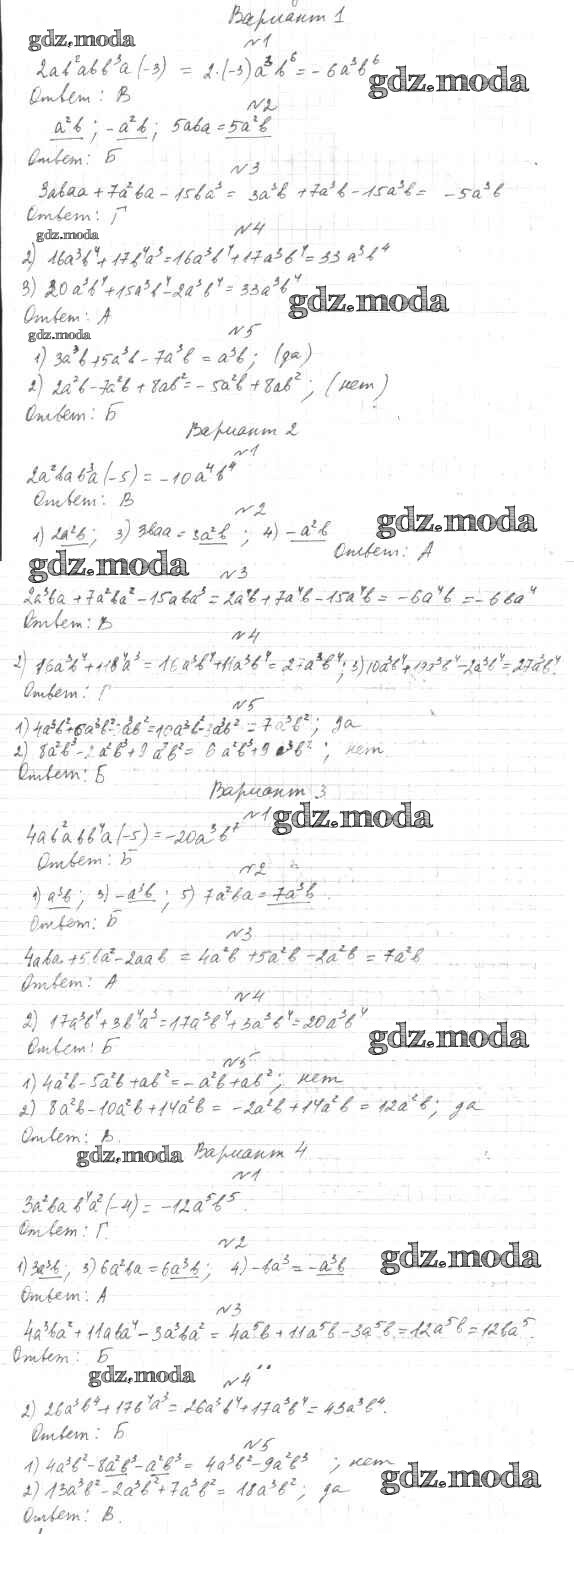 Вариант 1
gdz.moda
№1
2ab²abb³a(-3) = 2·(-3)a³b⁶ = -6a³b⁶
gdz.moda
Ответ: В
№2
a²b; -a²b; 5aba = 5a²b
Ответ: Б
№3
3abaa + 7a²ba - 15ba³ = 3a³b + 7a³b - 15a³b = -5a³b
Ответ: Г
gdz.moda
№4
2) 16a³b⁴ + 17b⁴a³ = 16a³b⁴ + 17a³b⁴ = 33a³b⁴
3) 20a³b⁴ + 15a³b⁴ - 2a³b⁴ = 33a³b⁴
gdz.moda
Ответ: А
gdz.moda
№5
1) 3a³b + 5a³b - 7a³b = a³b; (да)
2) 2a²b - 7a²b + 8ab² = -5a²b + 8ab²; (нет)
Ответ: Б
Вариант 2
№1
2a²bab³a(-5) = -10a⁴b⁴
Ответ: В
№2
gdz.moda
1) 2a²b; 3) 3baa = 3a²b; 4) -a²b
Ответ: А
gdz.moda
№3
2a³ba + 7a²ba² - 15aba³ = 2a⁴b + 7a⁴b - 15a⁴b = -6a⁴b = -6ba⁴
Ответ: В
№4
2) 16a³b⁴ + 11b⁴a³ = 16a³b⁴ + 11a³b⁴ = 27a³b⁴; 3) 10a³b⁴ + 19a³b⁴ - 2a³b⁴ = 27a³b⁴.
Ответ: Г
№5
1) 4a³b² + 6a³b² - 3a³b² = 10a³b² - 3a³b² = 7a³b²; да
2) 8a²b³ - 2a²b³ + 9a³b² = 6a²b³ + 9a³b²; нет
Ответ: Б
Вариант 3
№1
gdz.moda
4ab²abb⁴a(-5) = -20a³b⁷
Ответ: Б
№2
1) a³b; 3) -a³b; 5) 7a²ba = 7a³b.
Ответ: Б
№3
4aba + 5ba² - 2aab = 4a²b + 5a²b - 2a²b = 7a²b
Ответ: А
№4
2) 17a³b⁴ + 3b⁴a³ = 17a³b⁴ + 3a³b⁴ = 20a³b⁴
gdz.moda
Ответ: Б
№5
1) 4a²b - 5a²b + ab² = -a²b + ab²; нет
2) 8a²b - 10a²b + 14a²b = -2a²b + 14a²b = 12a²b; да
Ответ: В.
gdz.moda Вариант 4
№1
3a²ba b⁴a²(-4) = -12a⁵b⁵.
Ответ: Г.
№2
gdz.moda
1) 3a³b; 3) 6a²ba = 6a³b; 4) -ba³ = -a³b
Ответ: А
№3
4a³ba² + 11aba⁴ - 3a³ba² = 4a⁵b + 11a⁵b - 3a⁵b = 12a⁵b = 12ba⁵.
Ответ: Б
gdz.moda
№4
2) 26a³b⁴ + 17b⁴a³ = 26a³b⁴ + 17a³b⁴ = 43a³b⁴.
Ответ: Б
№5
1) 4a³b² - 8a²b³ - a²b³ = 4a³b² - 9a²b³; нет
gdz.moda
2) 13a³b² - 2a³b² + 7a³b² = 18a³b²; да
Ответ: В.